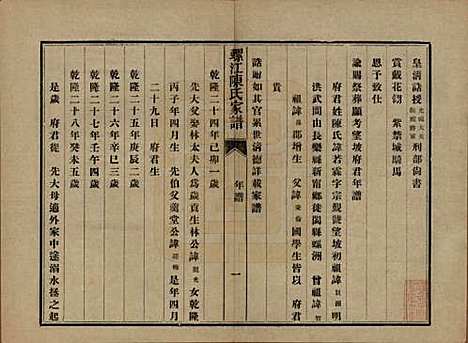 皇清誥授光祿大夫刑部尚書
賞戴花翎 紫禁城騎馬
恩予致仕
諭賜祭葬顯考望坡府君年譜
府君姓陳氏諱若霖字宗覲號望坡初祖諱 明
洪武間由長樂縣新甯鄉徙閩縣螺洲 曾祖諱
祖諱 郡增生 父諱 國學生皆以 府君
貴
誥贈如其官累世清德詳載家譜
乾隆二十四年己卯一歲
先大父娶林太夫人爲歲貢生林公諱 女乾隆
丙子年四月生 先伯父 堂公諱 是年四月
二十九日 府君生
乾隆二十五年庚辰二歲
乾隆二十六年辛巳三歲
乾隆二十七年壬午四歲
乾隆二十八年癸未五歲
是歲 府君從 先大母適外家中途溺水拯之起
螺江陳氏家譜
年譜
一